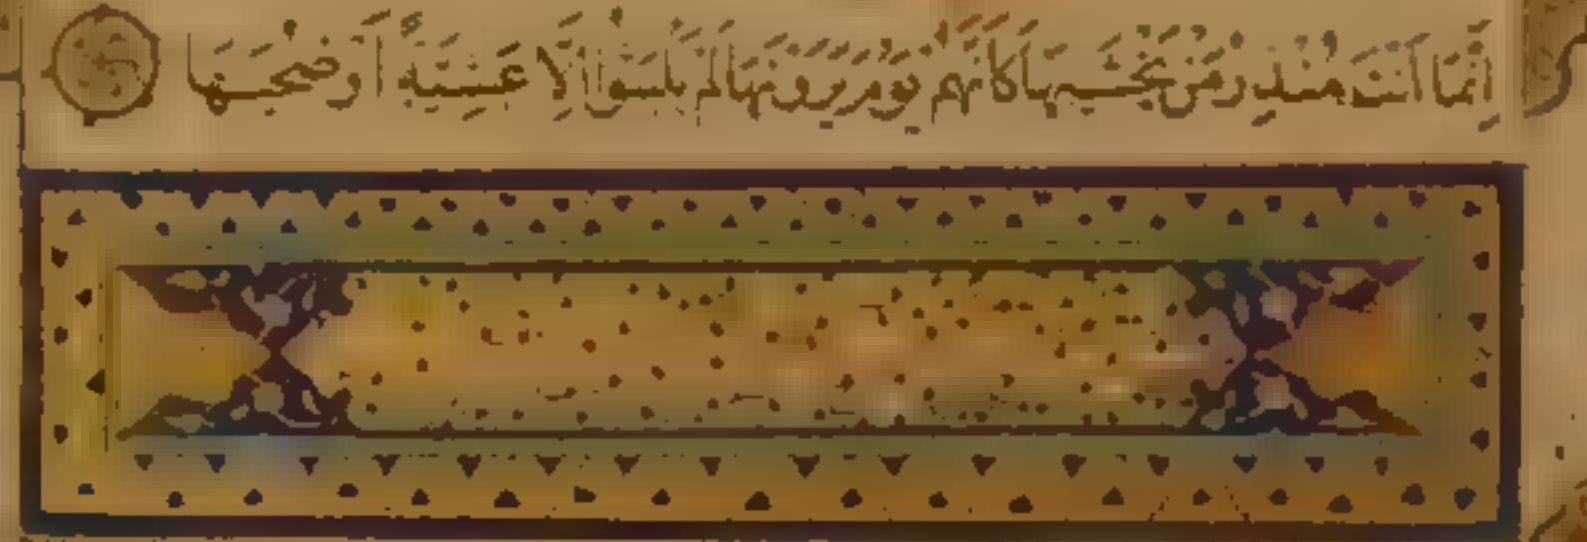 إِنَّمَا أَنْتَ مُنْذِرُ مَنْ يَخْشَىٰهَا كَأَنَّهُمْ يَوْمَ يَرَوْنَهَا لَمْ يَلْبَثُوا إِلَّا عَشِيَّةً أَوْ ضُحَىٰهَا